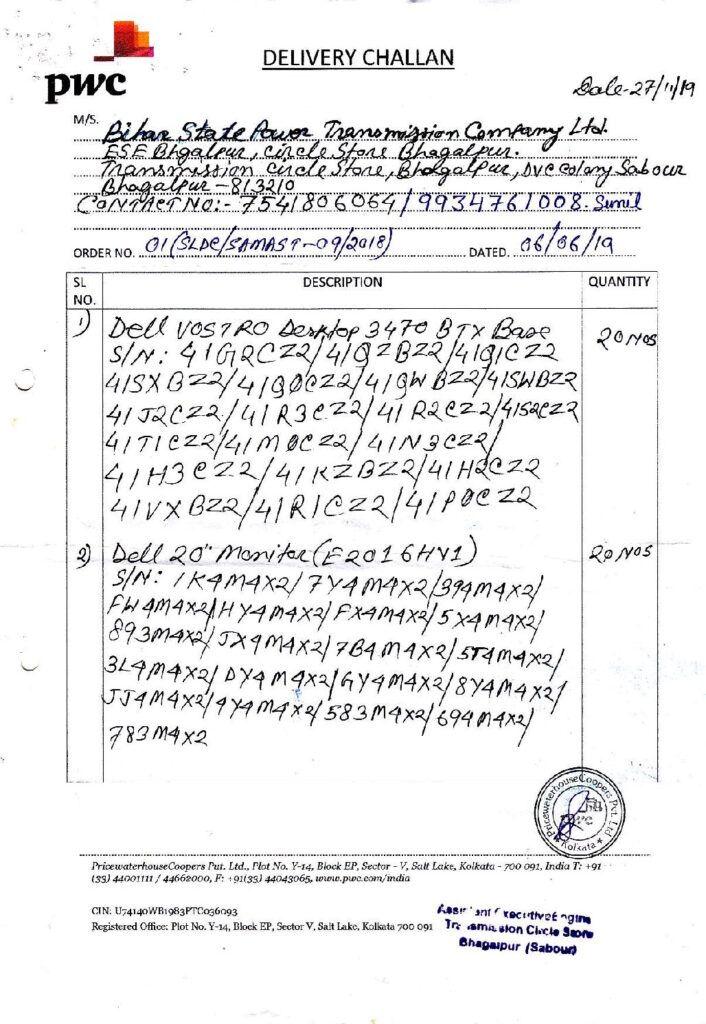 pwc
DELIVERY CHALLAN
Date-27/11/19
M/S.
Bihar State Power Transmission Company Ltd.
ESE Bhgalpur, Circle Store Bhagalpur.
Transmission circle Store, Bhagalpur, DVC Colany Sabour
Bhagalpur-813210
CONTACT NO:- 7541806064/9934761008. Sunil
ORDER NO. 01(SLDC/SAMAST-09/2018) DATED. 06/06/19
SL NO. DESCRIPTION QUANTITY
1) Dell VOSTRO Desktop 3470 BTX Base 20 NOS
S/N: 41G2CZ2/41QZBZ2/41Q1CZ2
41SXBZ2/41Q0CZ2/41QWBZ2/41SWBZ2
41J2CZ2/41R3CZ2/41R2CZ2/41S2CZ2
41T1CZ2/41M0CZ2/41N3CZ2/
41H3CZ2/41KZBZ2/41H2CZ2
41VXBZ2/41R1CZ2/41P0CZ2
2) Dell 20" Moniter(E2016HV1) 20 NOS
S/N: 1K4M4X2/7Y4M4X2/394M4X2/
FW4M4X2/HY4M4X2/FX4M4X2/5X4M4X2/
893M4X2/JX4M4X2/7B4M4X2/5T4M4X2/
3L4M4X2/DY4M4X2/GY4M4X2/8Y4M4X2/
JJ4M4X2/4Y4M4X2/583M4X2/694M4X2/
783M4X2
PricewaterhouseCoopers Pvt. Ltd.
pwc
Kolkata
PricewaterhouseCoopers Pvt. Ltd., Plot No. Y-14, Block EP, Sector - V, Salt Lake, Kolkata - 700 091, India T: +91
(33) 44001111 / 44662000, F: +91(33) 44043065, www.pwc.com/india
CIN: U74140WB1983PTC036093
Registered Office: Plot No. Y-14, Block EP, Sector V, Salt Lake, Kolkata 700 091
Assistant Executive Engine
Transmission Circle Store
Bhagalpur (Sabour)